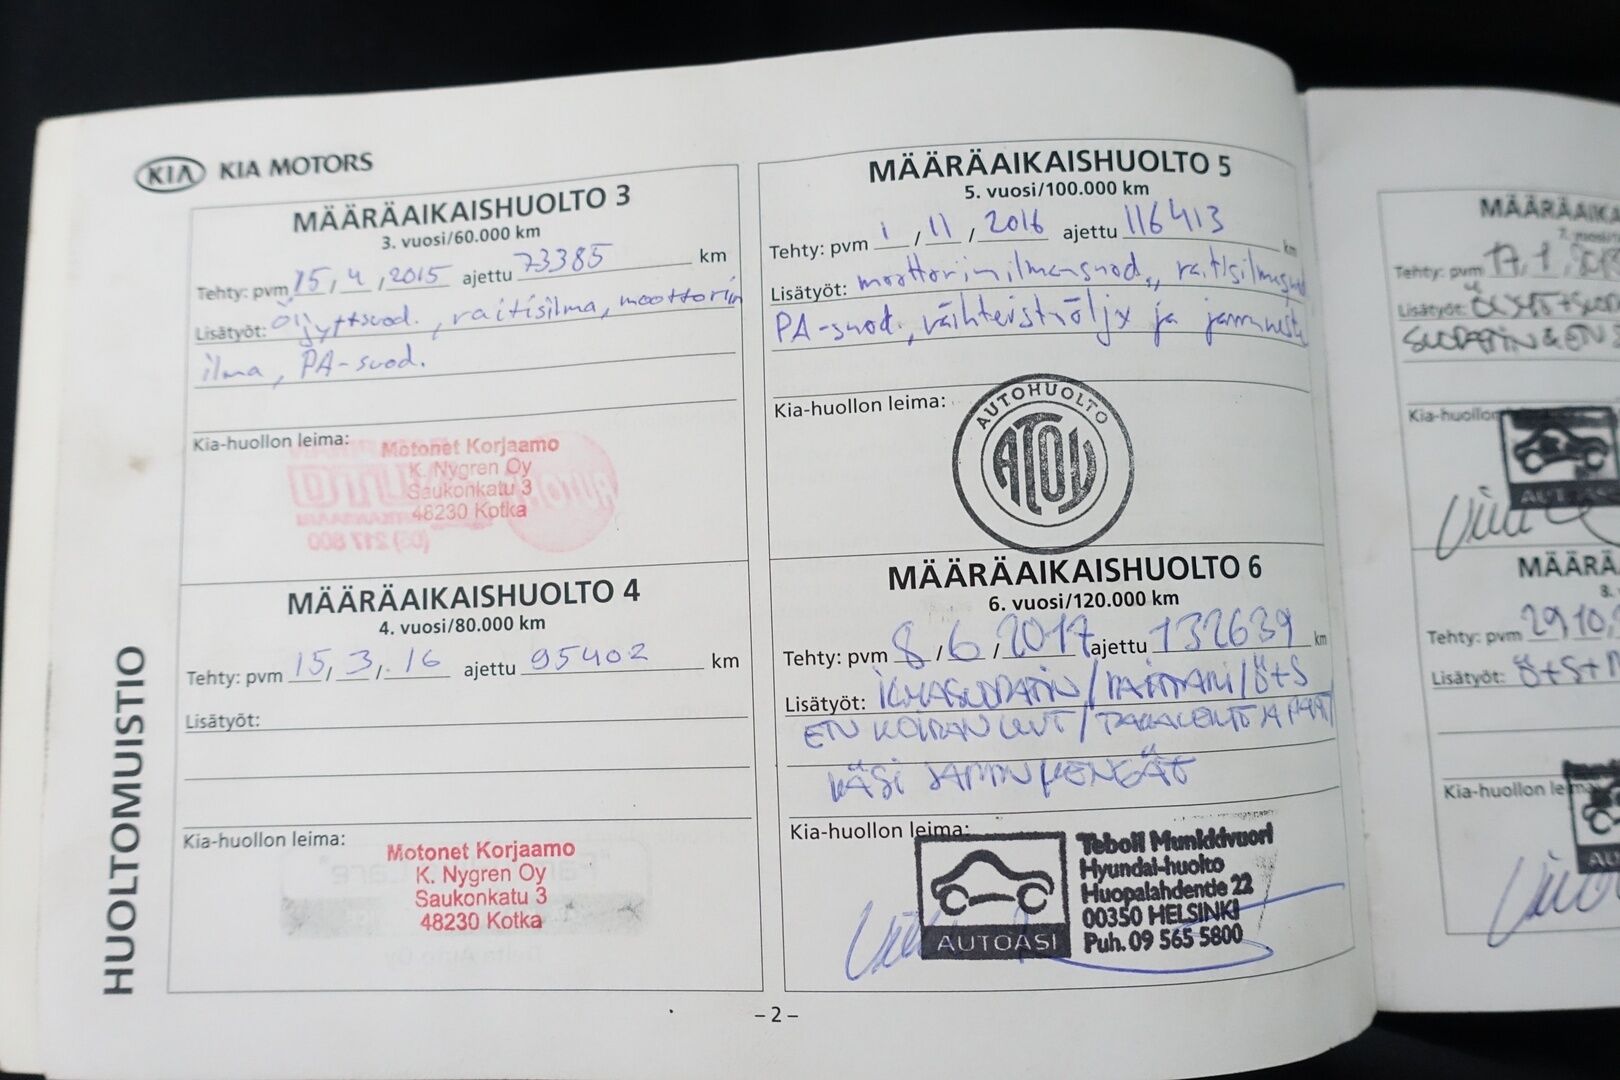 KIA KIA MOTORS
HUOLTOMUISTIO
MÄÄRÄAIKAISHUOLTO 3
3. vuosi/60.000 km
Tehty: pvm 15, 4, 2015 ajettu 73385 km
Lisätyöt: Öljyt+suod., raitisilma, moottorin
ilma, PA-suod.
Kia-huollon leima:
Motonet Korjaamo
K. Nygren Oy
Saukonkatu 3
48230 Kotka
MÄÄRÄAIKAISHUOLTO 4
4. vuosi/80.000 km
Tehty: pvm 15, 3, 16 ajettu 95402 km
Lisätyöt:
Kia-huollon leima:
Motonet Korjaamo
K. Nygren Oy
Saukonkatu 3
48230 Kotka
MÄÄRÄAIKAISHUOLTO 5
5. vuosi/100.000 km
Tehty: pvm 1/11/2016 ajettu 116413 km
Lisätyöt: moottorinilmansuod., raitisilmasuod
PA-suod., vaihteistoöljy ja jarruneste
Kia-huollon leima:
AUTOHUOLTO
ATOY
MÄÄRÄAIKAISHUOLTO 6
6. vuosi/120.000 km
Tehty: pvm 8/6/2017 ajettu 132639 km
Lisätyöt: ILMASUODATIN/RAITIS/Ö+S
ETN KOIRANLUUT/TAKALEHTO JA
KÄSI JARRUKENGÄT
Kia-huollon leima:
AUTOASI
Teboil Munkkivuori
Hyundai-huolto
Huopalahdentie 22
00350 HELSINKI
Puh. 09 565 5800
– 2 –
Tehty: pvm 17, 1,
Lisätyöt:
SUODATIN & ETN
Kia-huollon
Tehty: pvm 29, 10,
Lisätyöt: Ö+S+
Kia-huollon leima